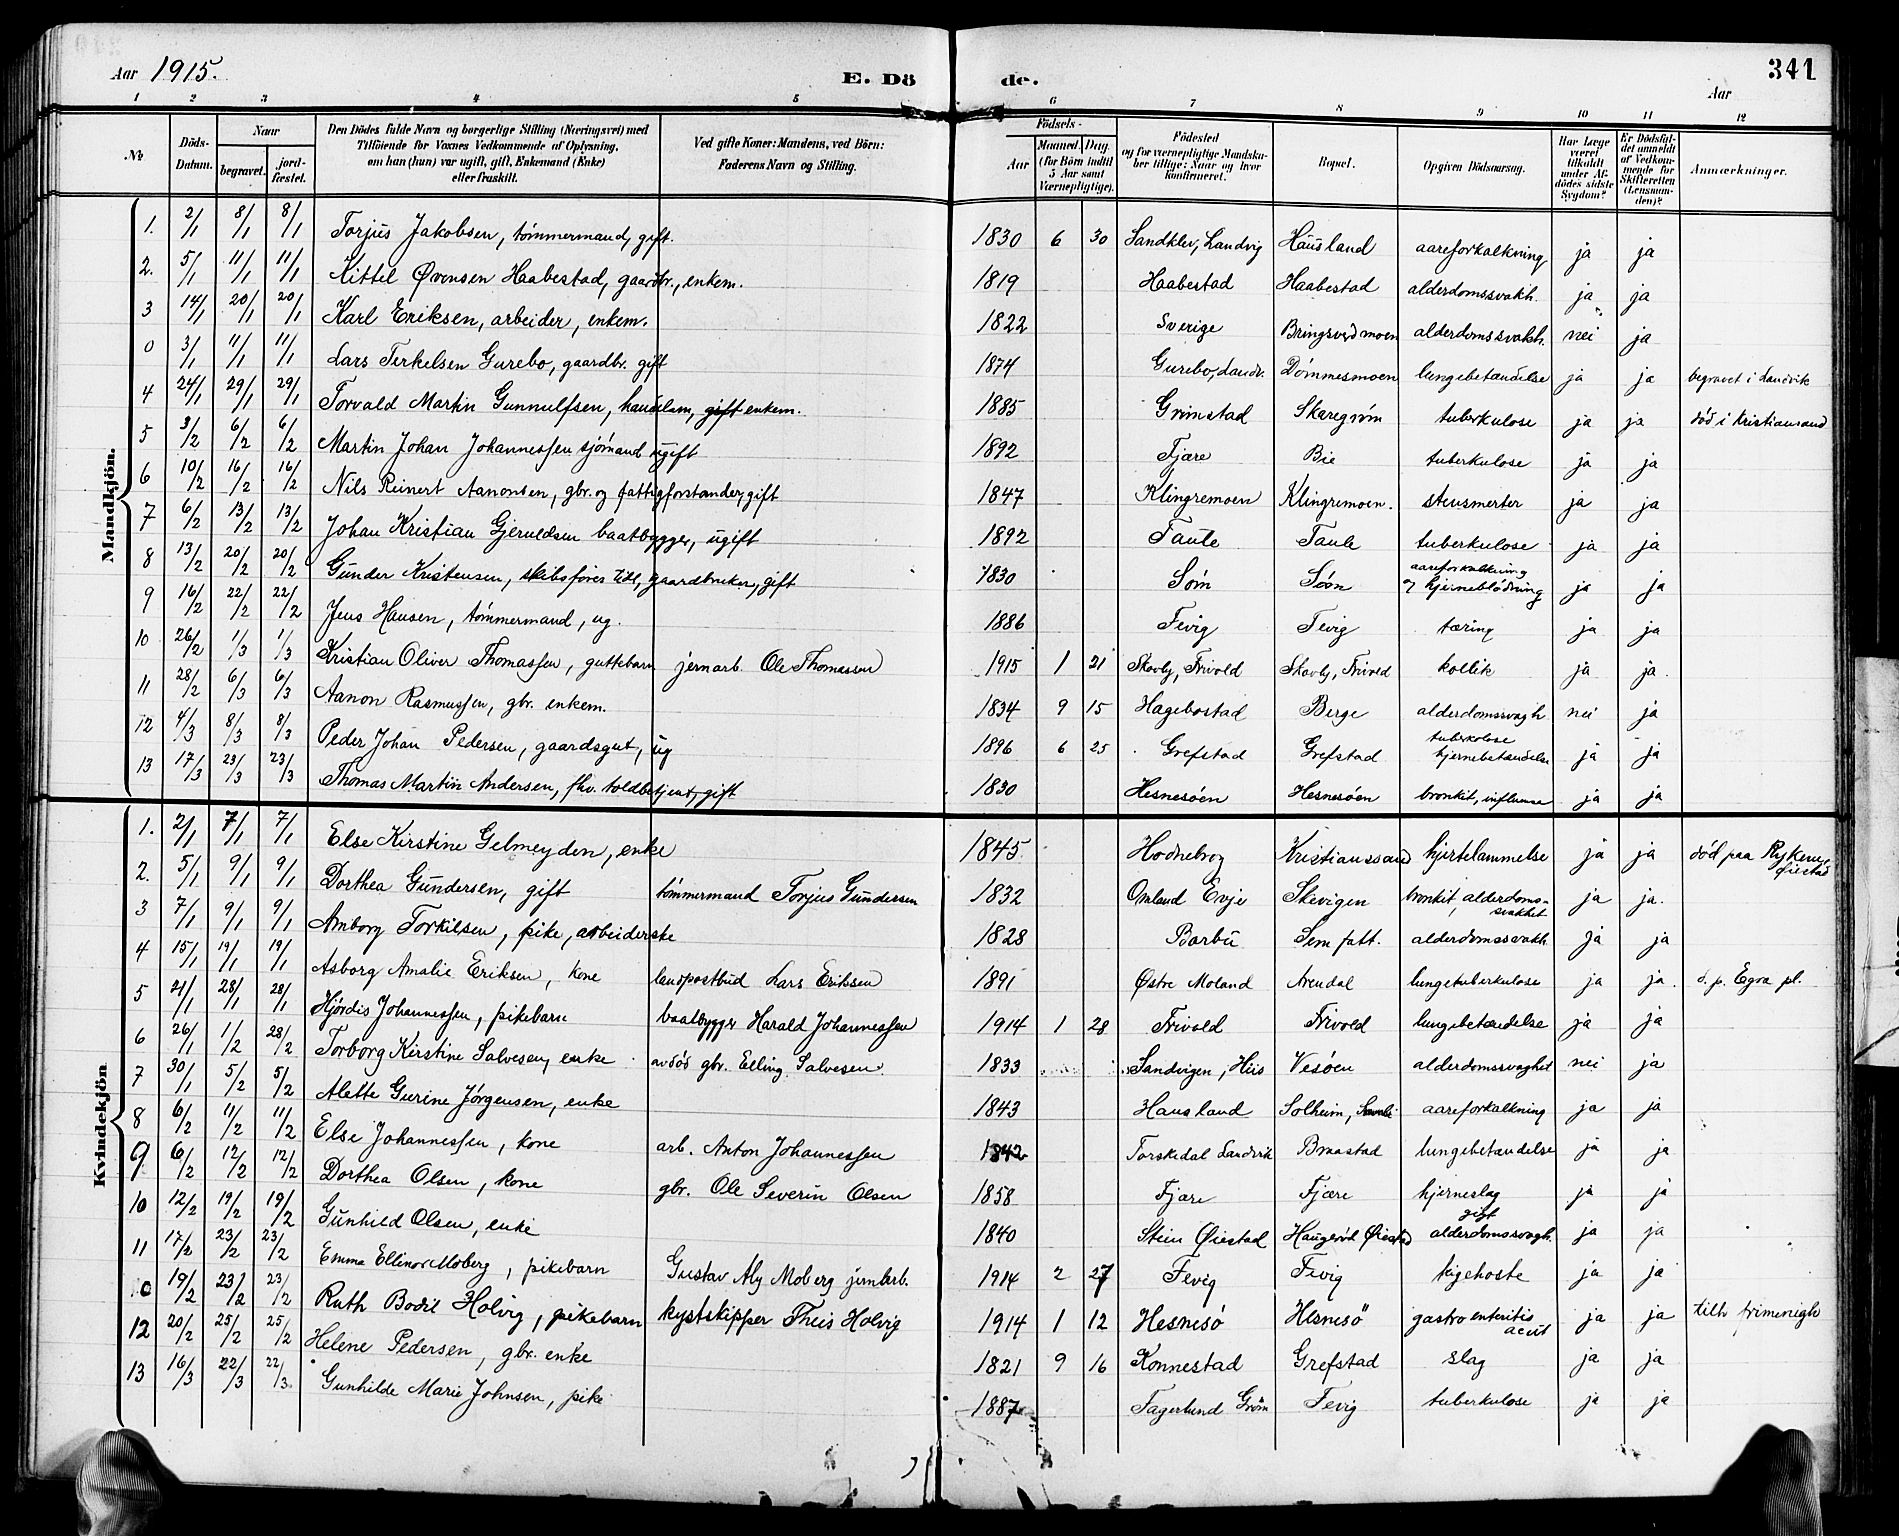 Aar 1915. E. Dö de. Aar 341
1 2 3 4 5 6 7 8 9 10 11 12
No Döds-Datum. Naar begravet. jordfæstet. Den Dödes fulde Navn og borgerlige Stilling (Næringsvei) med Tilföiende for Voxnes Vedkommende af Oplysning, om han (hun) var ugift, gift, Enkemand (Enke) eller fraskilt. Ved gifte Koner: Mandens, ved Börn: Faderens Navn og Stilling. Födsels- Aar Maaned. Dag. (for Börn indtil 5 Aar samt Værnepligtige). Födested og for værnepligtige Mandskaber tillige: Naar og hvor konfirmeret. Bopæl. Opgiven Dödsaarsag. Har Læge været tilkaldt under Afdödes sidste Sygdom? Er Dödsfaldet anmeldt af Vedkommende for Skifteretten (Lensmanden)? Anmærkninger.
Mandkjön.
1. 2/1 8/1 8/1 Torjus Jakobsen, tömmermand, gift. 1830 6 30 Sandklev, Landvig Hausland aareforkalkning ja ja
2. 5/1 11/1 11/1 Kittel Övensen Haabestad, gaardbr., enkem. 1819 Haabestad Haabestad alderdomssvakh. ja ja
3 14/1 20/1 20/1 Karl Eriksen, arbeider, enkem. 1822 Sverige Bringsværdmoen alderdomssvakh. nei ja
0 3/1 11/1 11/1 Lars Terkelsen Gurebo, gaardbr. gift 1874 Gurebo, Landv. Dömmesmoen lungebetændelse ja ja begravet i Landvik
4 24/1 29/1 29/1 Torvald Martin Gunnulfsen, handelsm, gift enkem. 1885 Grimstad Skaregröm tuberkulose ja ja död i Kristiansand
5 3/2 6/2 6/2 Martin Johan Johannessen sjömand ugift 1892 Fjære Bie tuberkulose ja ja
6 10/2 16/2 16/2 Nils Reinert Aanonsen, gbr. og fattigforstander, gift 1847 Klingremoen Klingremoen. stensmerter ja ja
7 6/2 13/2 13/2 Johan Kristian Gjeruldsen baatbygger, ugift 1892 Taule Taule tuberkulose ja ja
8 13/2 20/2 20/2 Gunder Kristensen, skibsförer tidl, gaardbruker, gift 1830 Söm Söm aareforkalkning og hjerneblödning ja ja
9 16/2 22/2 22/2 Jens Hansen, tömmermand, ug. 1886 Fevig Fevig tæring ja ja
10 26/2 1/3 1/3 Kristian Oliver Thomassen, guttebarn jernarb. Ole Thomassen 1915 1 21 Skovly, Frivold Skovly, Frivold kollik ja ja
11 28/2 6/3 6/3 Aanon Rasmussen, gbr. enkem. 1834 9 15 Hagebostad Berge alderdomssvagh nei ja
12 4/3 8/3 8/3 Peder Johan Pedersen, gaardsgut, ug 1896 6 25 Grefstad Grefstad tuberkolose hjernebetændelse ja ja
13 17/3 23/3 23/3 Thomas Martin Andersen, fhv. toldbetjent, gift 1830 Hesnesöen Hesnesöen bronkit, influense ja ja
Kvindekjön
1. 2/1 7/1 7/1 Else Kirstine Gelmeyden, enke 1845 Hodnebrog Kristianssand hjertelammelse ja ja död paa Rykene Öiestad
2. 5/1 9/1 9/1 Dorthea Gundersen, gift tömmermand Torjus Gundersen 1832 Omland Evje Skevigen bronkit, alderdomssvakhet ja ja.
3 7/1 9/1 9/1 Amborg Torkilsen, pike, arbeiderske 1828 Barbu Sem fatt. alderdomssvakh. ja ja
4 15/1 19/1 19/1 Asborg Amalie Eriksen, kone landpostbud Lars Eriksen 1891 Östre Moland Arendal lungetuberkulose ja ja. d. p. Egra pl.
5 21/1 28/1 28/1 Hjördis Johannessen, pikebarn baatbygger Harald Johannessen 1914 1 28 Frivold Frivold lungebetændelse ja ja
6 26/1 1/2 28/2 Torborg Kirstine Salvesen, enke avdöd gbr. Elling Salvesen 1833 Sandvigen, Hiis Vesöen alderdomssvaghet nei ja
7 30/1 5/2 5/2 Alette Gurine Jörgensen, enke 1843 Hausland Solheim, aareforkalkning ja ja
8 6/2 11/2 11/2 Else Johannessen, kone arb. Anton Johannessen 1842 Torskedal Landvik Braastad lungebetændelse ja ja
9 6/2 12/2 12/2 Dorthea Olsen, kone gbr. Ole Severin Olsen 1858 Fjære Fjære hjerneslag ja ja
10 12/2 19/2 19/2 Gunhild Olsen, enke 1840 Stein Öiestad Haugeröd Öiestad gigt alderdomssvagh. ja ja
11 17/2 23/2 23/2 Emma Ellinor Moberg, pikebarn Gustav Alf Moberg jernarb. 1914 2 27 Fevig Fevig kigehoste ja ja
0 19/2 23/2 23/2 Ruth Bodil Holvig, pikebarn kystskipper Theis Holvig 1914 1 12 Hesnesö Hesnesö gastro enteritis acut ja ja tilh frimenigh
12 20/2 25/2 25/2 Helene Pedersen, gbr. enke 1821 9 16 Konnestad Grefstad slag ja ja
13 16/3 22/3 22/3 Gunhilde Marie Johnsen, pike 1887 Fagerlund Gröm Fevig tuberkulose ja ja